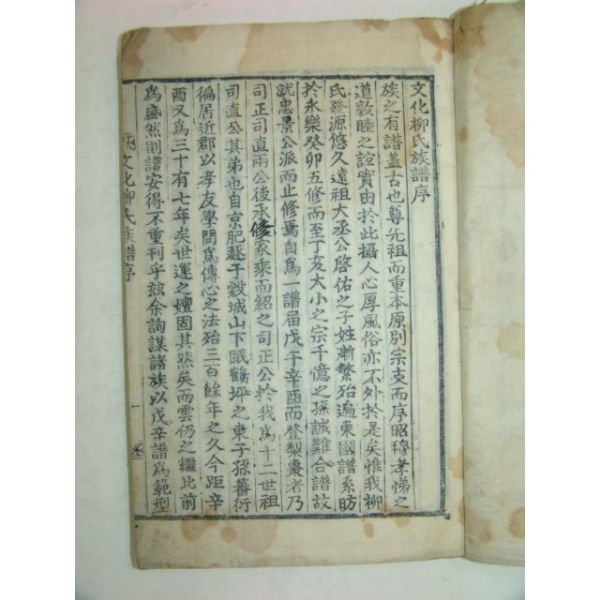 文化柳氏族譜序
族之有譜盖古也尊先祖而重本原別宗支而序昭穆孝悌之
道敦睦之誼實由於此攝人心厚風俗亦不外於是矣惟我柳
氏發源悠久遠祖大丞公啓佑之子姓漸繁殆遍東國譜系昉
於永樂癸卯五修而至丁亥大小之宗千億之孫誠難合譜故
就忠景公派而止修焉自爲一譜屆戊午辛酉而登梨棗者乃
司正司直兩公後承修家乘而紹之司正公於我爲十二世祖
司直公其弟也自京肥遯于穀城山下眠鶴坪之東子孫蕃衍
徧居近郡以孝友學問爲傳心之法殆三百餘年之久今距辛
酉又爲三十有七年矣世運之嬗固其然矣而雲仍之繼比前
爲盛然則譜安得不重刊乎玆余詢謀諸族以戊辛譜爲範型
文化柳氏族譜序
一